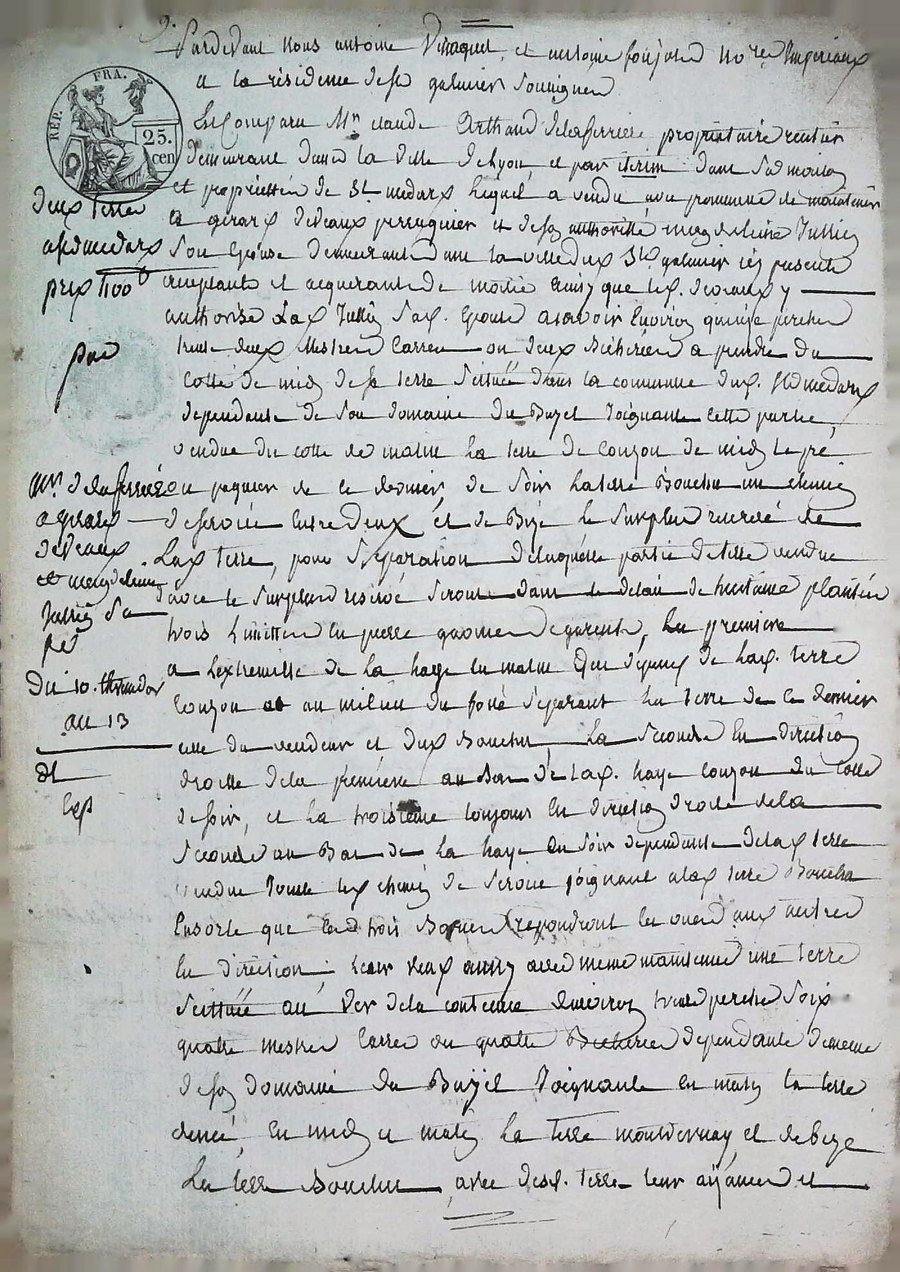 Pardevant nous antoine et antoine no.re Imperiaux
a la résidence de st galmier
RÉP. FRA.
25. cen
Est Comparu Mr. claude Arthaud delaferriere propriétaire rentier
demeurant dans la ville de Lyon et par dans sa maison
et propriettée de St medard Lequel a vendu avec promesse de maintenir
a girard deveaux perruquier et de son authorité magdelaine Jullien
Son épouse demeurants dans la ville dud. St. galmier icy presents
acceptants et acquerants de moitié ainsy que led. deveaux y
authorise Lad Jullien Sad. Epouse asavoir Environ quinze perches
trente deux Mestres Carres ou deux Bicherées a prendre du
Cotté de midy de sa terre Scittuée dans la commune dud. St medard
dependante de Son domaine du Buyet Joignante cette partie
vendue du cotté de matin La terre de Couzon de midy Le pré
ou paquier de ce dernier, de Soir La terre Bouchu un chemin
de Service Entre deux, et de Bize Le Surplus reservé de
Lad terre, pour Separation de laquelle partie de terre vendue
d'avec le Surplus resérvé Seront dans le delais de huitaine plantés
trois Limittes En pierre garnies de garents, La premiere
a L'extremitté de La haye du matin qui depend de Lad. terre
Couzon et au milieu du fossé Separant La terre de ce dernier
celle du vendeur et dud Bouchu, La Seconde En direction
droitte de la premiere au Bas de Lad. haye Couzon du Cotté
de Soir, et La troisieme toujours En direction droite de la
Seconde au Bas de La haye du Soir dependante de lad terre
vendue Joute led chemin de Service joignant a lad terre Bouchu
Ensorte que les trois Bornes repondront les unes aux autres
En direction: vend aussy avec meme maintenue une terre
Scittuée au de la contenue d'environ trente perches Soix
quatre mestres Carres ou quatre Bicherées dependante de meme
de son domaine du Buyet Joignante En matin La terre
En midy et matin La terre et de bize
La terre Bouchu, avec desd. terres Leurs aizances et
deux terres
a St medard
prix 1100
Mr. delaferriere
a girard
deveaux
et magdelaine
Jullien Sa
fe
Du 10. thermidor
au 13